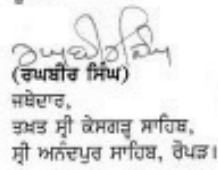 (ਰਘਬੀਰ ਸਿੰਘ)
ਜਥੇਦਾਰ,
ਤਖ਼ਤ ਸ੍ਰੀ ਕੇਸਗੜ੍ਹ ਸਾਹਿਬ,
ਸ੍ਰੀ ਅਨੰਦਪੁਰ ਸਾਹਿਬ, ਰੋਪੜ।